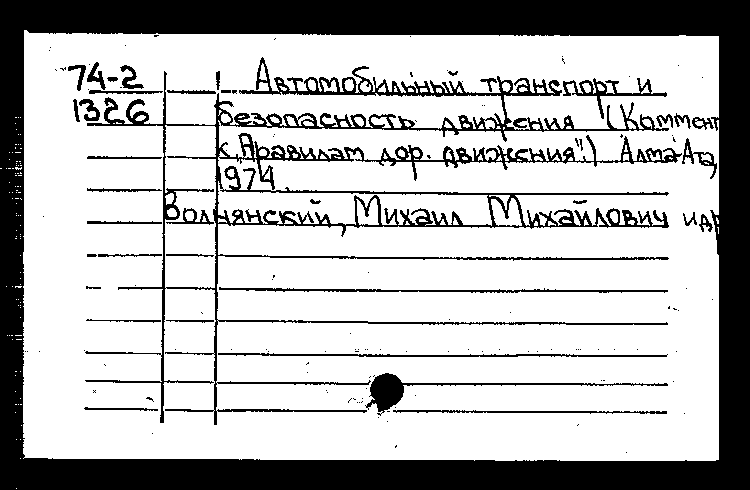 74-2 Автомобильный транспорт и
1326 безопасность движения (Коммент
к „Правилам дор. движения".) Алма-Ата,
1974.
Волнянский, Михаил Михайлович и др